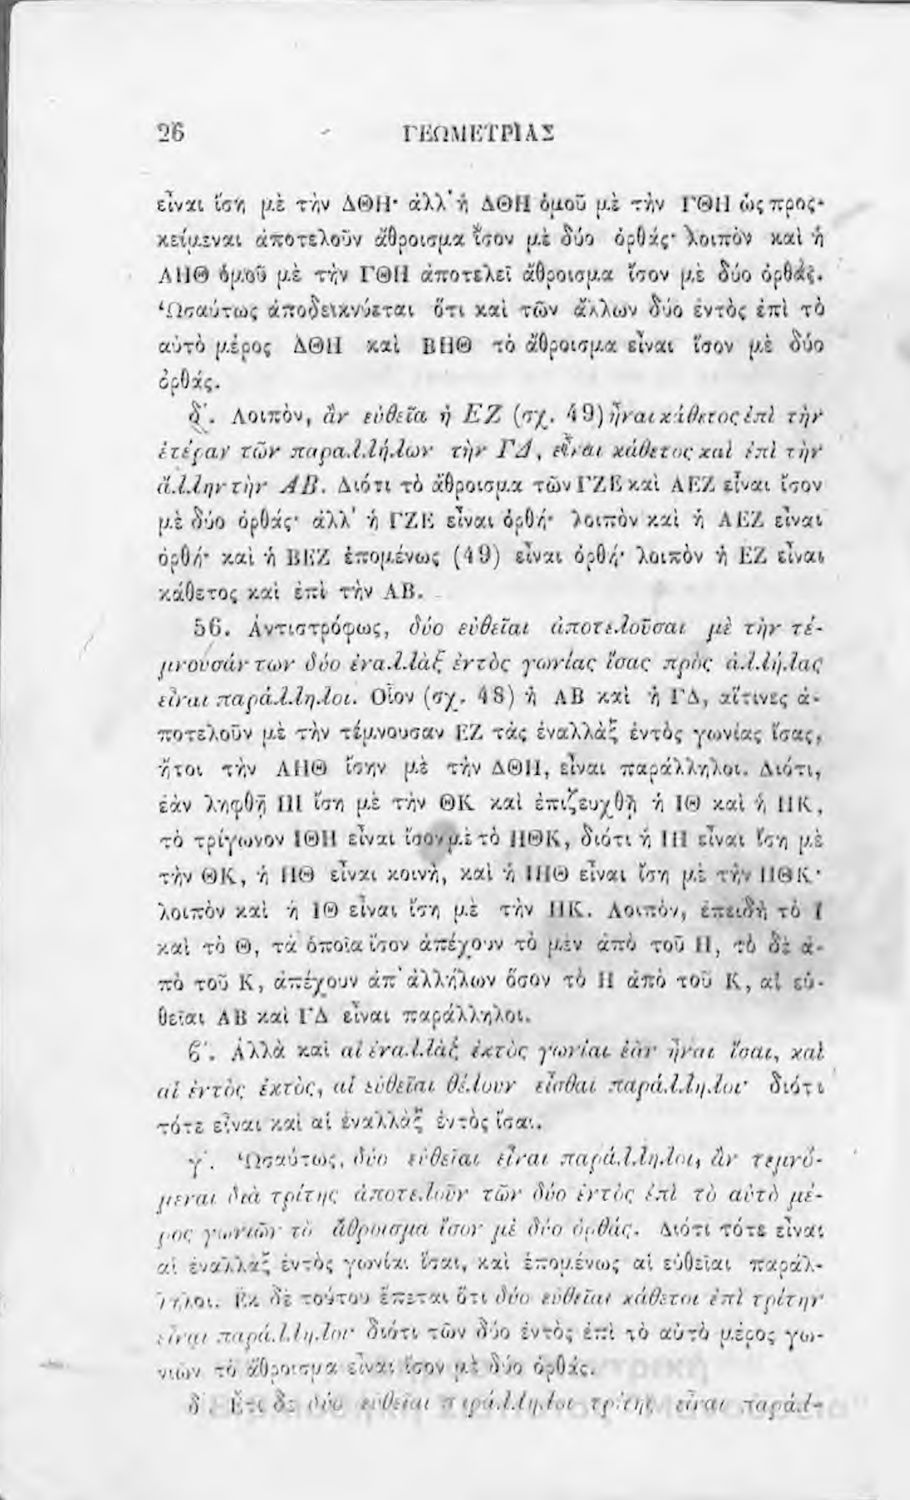 26 ΓΕΩΜΕΤΡΙΑΣ
εἶναι ἴση μὲ τὴν ΔΘΗ· ἀλλ' ἡ ΔΘΗ ὁμοῦ μὲ τὴν ΓΘΗ ὡς προς-
κείμεναι ἀποτελοῦν ἄθροισμα ἴσον μὲ δύο ὀρθάς· λοιπὸν καὶ ἡ
ΑΗΘ ὁμοῦ μὲ τὴν ΓΘΗ ἀποτελεῖ ἄθροισμα ἴσον μὲ δύο ὀρθάς.
Ὡσαύτως ἀποδεικνύεται ὅτι καὶ τῶν ἄλλων δύο ἐντὸς ἐπὶ τὸ
αὐτὸ μέρος ΔΘΗ καὶ ΒΗΘ τὸ ἄθροισμα εἶναι ἴσον μὲ δύο
ὀρθάς.
δ'. Λοιπὸν, ἂν εὐθεῖα ἡ ΕΖ (σχ. 49) ἦναι κάθετος ἐπὶ τὴν
ἑτέραν τῶν παραλλήλων τὴν ΓΔ, εἶναι κάθετος καὶ ἐπὶ τὴν
ἄλλην τὴν ΑΒ. Διότι τὸ ἄθροισμα τῶν ΓΖΕ καὶ ΑΕΖ εἶναι ἴσον
μὲ δύο ὀρθάς· ἀλλ' ἡ ΓΖΕ εἶναι ὀρθή· λοιπὸν καὶ ἡ ΑΕΖ εἶναι
ὀρθή· καὶ ἡ ΒΕΖ ἑπομένως (49) εἶναι ὀρθή· λοιπὸν ἡ ΕΖ εἶναι
κάθετος καὶ ἐπὶ τὴν ΑΒ.
56. Ἀντιστρόφως, δύο εὐθεῖαι ἀποτελοῦσαι μὲ τὴν τέ-
μνουσάν των δύο ἐναλλὰξ ἐντὸς γωνίας ἴσας πρὸς ἀλλήλας
εἶναι παράλληλοι. Οἷον (σχ. 48) ἡ ΑΒ καὶ ἡ ΓΔ, αἵτινες ἀ-
ποτελοῦν μὲ τὴν τέμνουσαν ΕΖ τὰς ἐναλλὰξ ἐντὸς γωνίας ἴσας,
ἤτοι τὴν ΑΗΘ ἴσην μὲ τὴν ΔΘΗ, εἶναι παράλληλοι. Διότι,
ἐὰν ληφθῇ ΙΗ ἴση μὲ τὴν ΘΚ καὶ ἐπιζευχθῇ ἡ ΙΘ καὶ ἡ ΗΚ,
τὸ τρίγωνον ΙΘΗ εἶναι ἴσον μὲ τὸ ΗΘΚ, διότι ἡ ΙΗ εἶναι ἴση μὲ
τὴν ΘΚ, ἡ ΗΘ εἶναι κοινὴ, καὶ ἡ ΙΗΘ εἶναι ἴση μὲ τὴν ΗΘΚ·
λοιπὸν καὶ ἡ ΙΘ εἶναι ἴση μὲ τὴν ΗΚ. Λοιπὸν, ἐπειδὴ τὸ Ι
καὶ τὸ Θ, τὰ ὁποῖα ἴσον ἀπέχουν τὸ μὲν ἀπὸ τοῦ Η, τὸ δὲ ἀ-
πὸ τοῦ Κ, ἀπέχουν ἀπ' ἀλλήλων ὅσον τὸ Η ἀπὸ τοῦ Κ, αἱ εὐ-
θεῖαι ΑΒ καὶ ΓΔ εἶναι παράλληλοι.
β'. Ἀλλὰ καὶ αἱ ἐναλλὰξ ἐκτὸς γωνίαι ἐὰν ἦναι ἴσαι, καὶ
αἱ ἐντὸς ἐκτὸς, αἱ εὐθεῖαι θέλουν εἶσθαι παράλληλοι· διότι
τότε εἶναι καὶ αἱ ἐναλλὰξ ἐντὸς ἴσαι.
γ'. Ὡσαύτως, δύο εὐθεῖαι εἶναι παράλληλοι, ἂν τεμνό-
μεναι διὰ τρίτης ἀποτελοῦν τῶν δύο ἐντὸς ἐπὶ τὸ αὐτὸ μέ-
ρος γωνιῶν τὸ ἄθροισμα ἴσον μὲ δύο ὀρθάς. Διότι τότε εἶναι
αἱ ἐναλλὰξ ἐντὸς γωνίαι ἴσαι, καὶ ἑπομένως αἱ εὐθεῖαι παράλ-
ληλοι. Ἐκ δὲ τούτου ἕπεται ὅτι δύο εὐθεῖαι κάθετοι ἐπὶ τρίτην
εἶναι παράλληλοι· διότι τῶν δύο ἐντὸς ἐπὶ τὸ αὐτὸ μέρος γω-
νιῶν τὸ ἄθροισμα εἶναι ἴσον μὲ δύο ὀρθάς.
δ'. Ἔτι δὲ δύο εὐθεῖαι παράλληλοι τρίτης εἶναι παράλ-